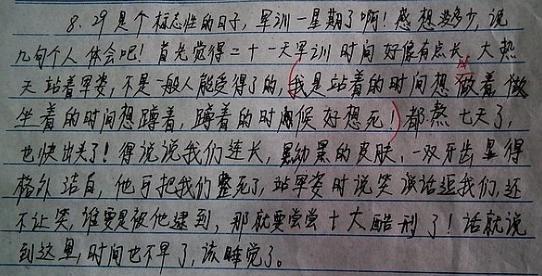 8.29是个标志性的日子,军训一星期了啊!感想没多少,说
几句个人体会吧!首先觉得二十一天军训时间好像有点长,大热
天站着军姿,不是一般人能受得了的,我是站着的时间想坐着,做
坐着的时间想蹲着,蹲着的时候好想死!都熬七天了,
也快出头了!得说说我们连长,黑黝黑的皮肤,一双牙齿显得
格外洁白,他可把我们整死了,站军姿时说笑话逗我们,还
不让笑,谁要是被他逮到,那就要尝尝十大酷刑了!话就说
到这里,时间也不早了,该睡觉了。